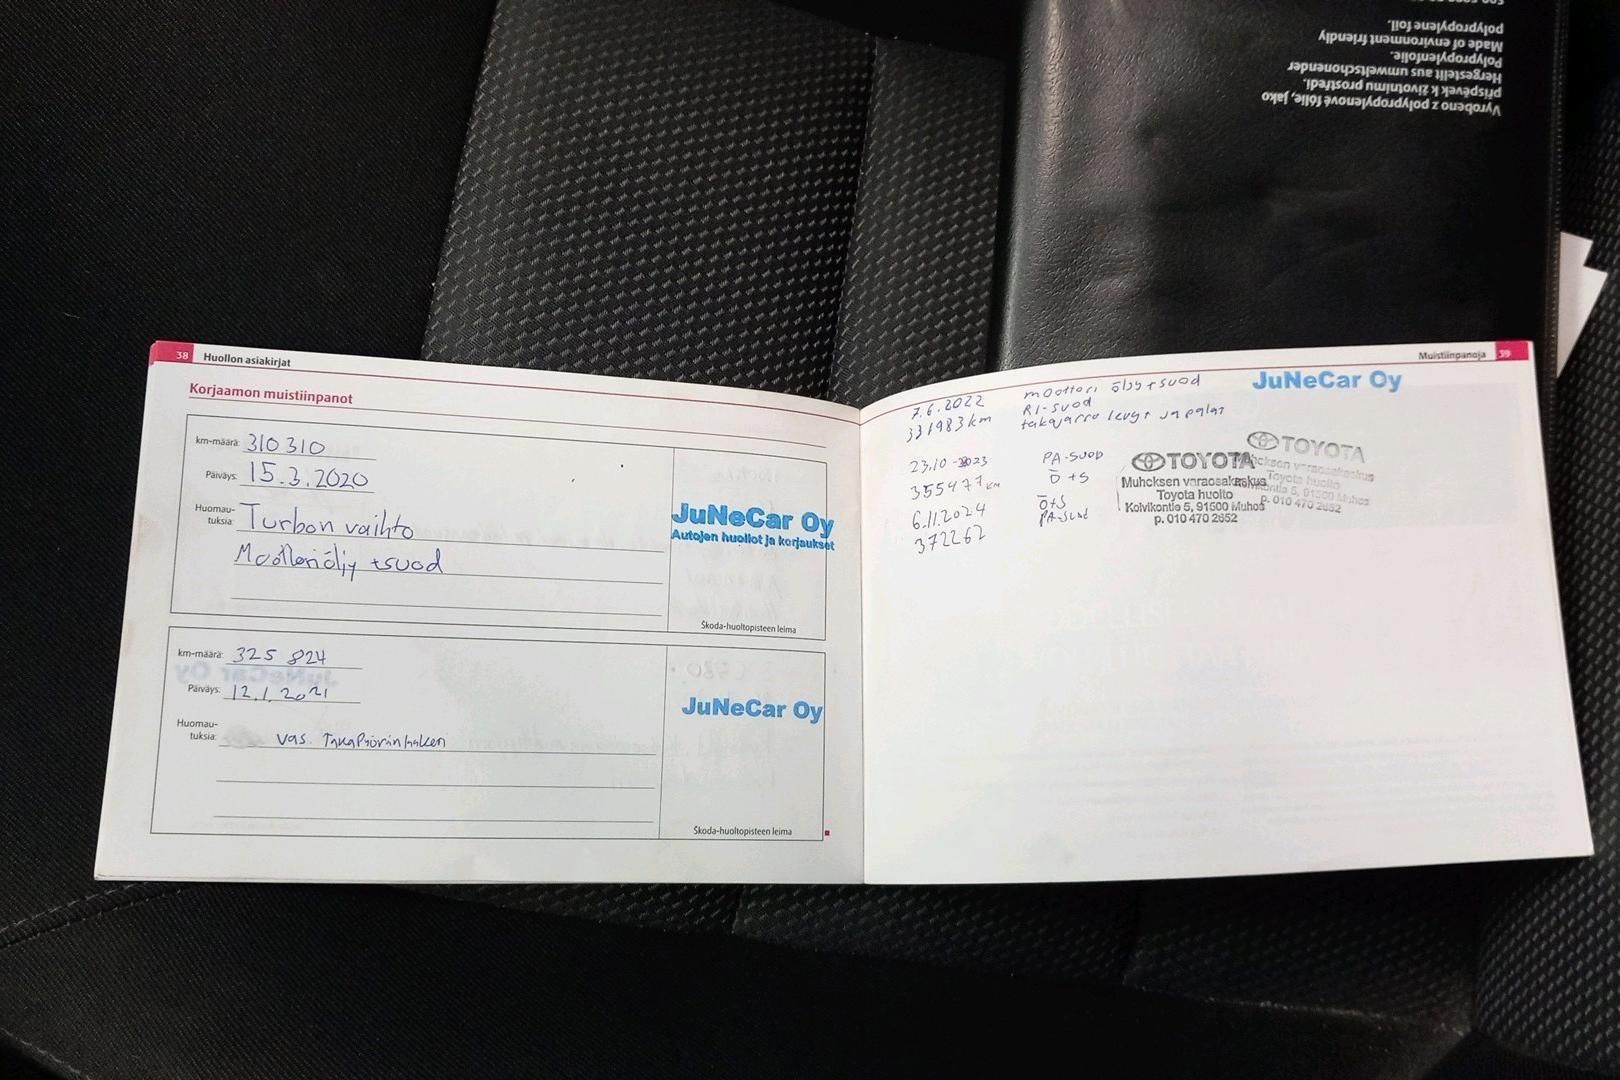 polypropylene foil.
Made of environment friendly
Polypropylenfolie.
Hergestellt aus umweltschonender
příspěvek k životnímu prostředí.
Vyrobeno z polypropylenové fólie, jako
38 Huollon asiakirjat
Korjaamon muistiinpanot
km-määrä: 310 310
Päiväys: 15.3.2020
Huomau-
tuksia: Turbon vaihto
Moottoriöljy +suod
JuNeCar Oy
Autojen huollot ja korjaukset
Škoda-huoltopisteen leima
km-määrä: 325 824
Päiväys: 12.1.2021
Huomau-
tuksia: vas. Takapyöränlaakeri
JuNeCar Oy
Škoda-huoltopisteen leima
Muistiinpanoja 39
7.6.2022 moottori öljy +suod
331983 km RI-suod
takajarru levyt ja palat
JuNeCar Oy
23.10-2023 PA-suod
355477 km Ö+S
6.11.2024 Ö+S
372262 PA-suod
TOYOTA
Muhoksen varaosakeskus
Toyota huolto
Koivikontie 5, 91500 Muhos
p. 010 470 2652
TOYOTA
Muhoksen varaosakeskus
Toyota huolto
Koivikontie 5, 91500 Muhos
p. 010 470 2652